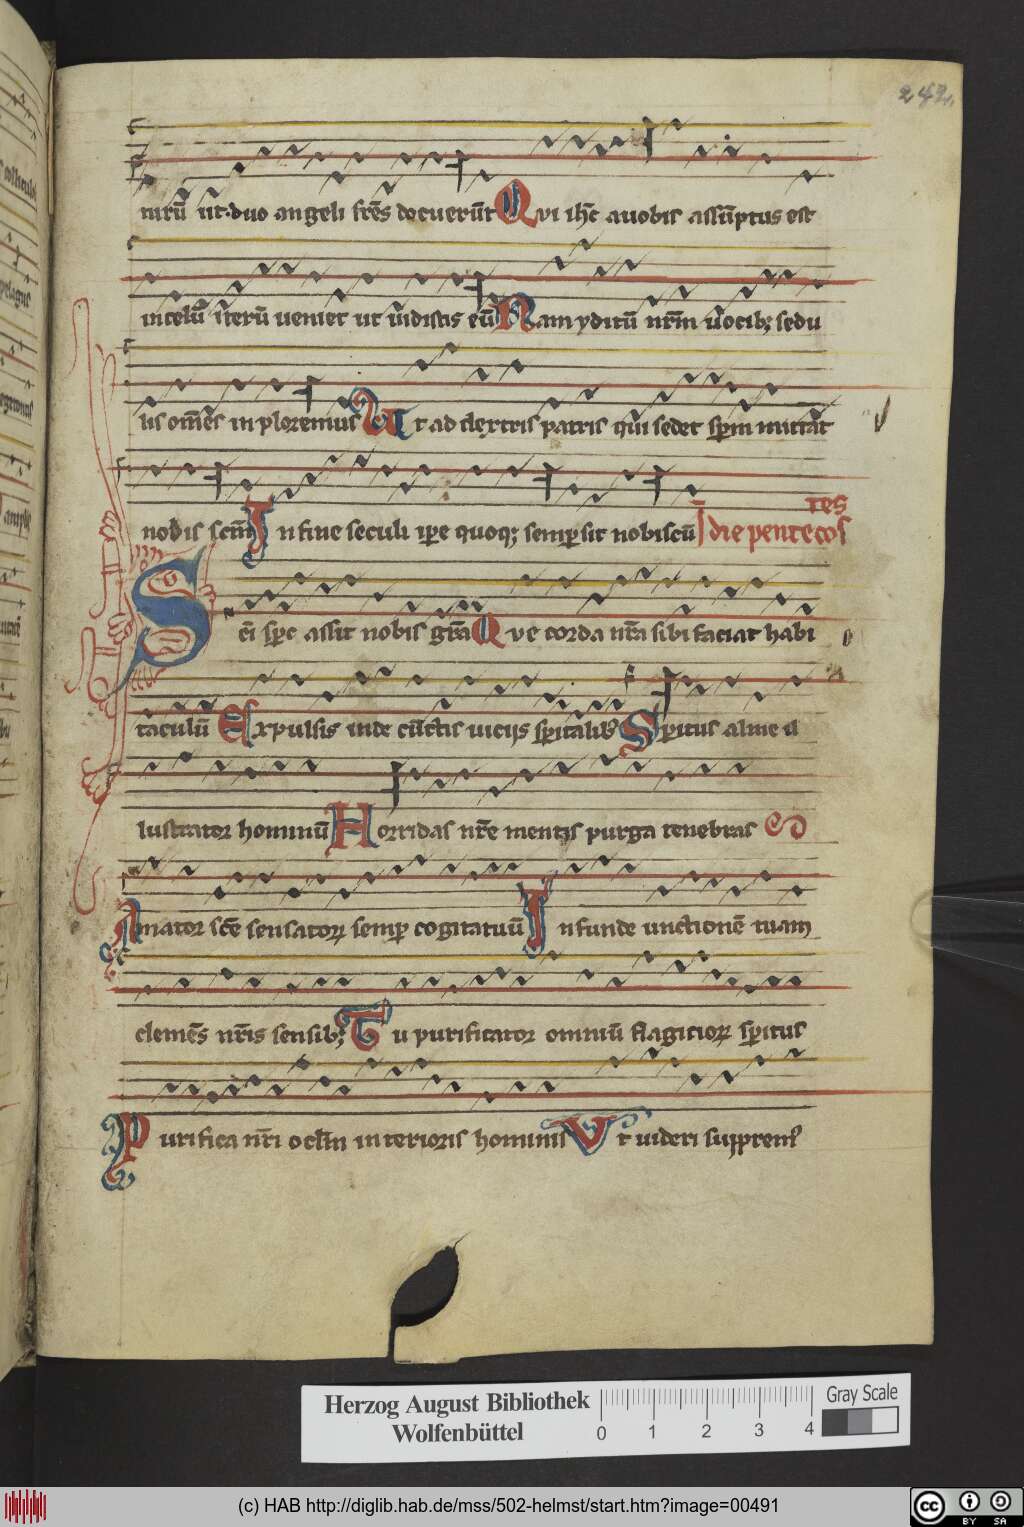 242
nirū ut duo angeli frēs docuerūt Qvi ihc̄ a uobis assūptus est
in celū iterū ueniet ut uidistis eū Nam yditū nr̄m uocib; sedu
lis om̄es in ploremus Ut ad dextris patris qui sedet sp̄m mittat
nobis sc̄m In fine seculi ip̄e quoq; semp sit nobiscū I die pentecos
tes
Sc̄i sp̄c assit nobis gr̄a Qve corda nr̄a sibi faciat habi
taculū Expulsis inde cūctis uicijs sp̄italib; Sp̄itus alme il
lustrator hominū Horridas nr̄e mentis purga tenebras
Amator sc̄e sensatoꝝ semp cogitatuū Infunde unctionē tuam
clemēs nr̄is sensib; Tu purificator omniū flagicioꝝ sp̄itus
Purifica nr̄i oclm̄ interioris hominis Vt uideri supprem9
Herzog August Bibliothek
Wolfenbüttel
0 1 2 3 4
Gray Scale
(c) HAB http://diglib.hab.de/mss/502-helmst/start.htm?image=00491
cc BY SA